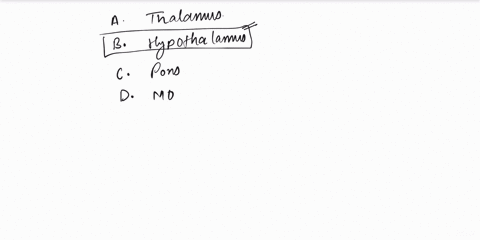 A. Thalamus
B. Hypothalamus
C. Pons
D. MO